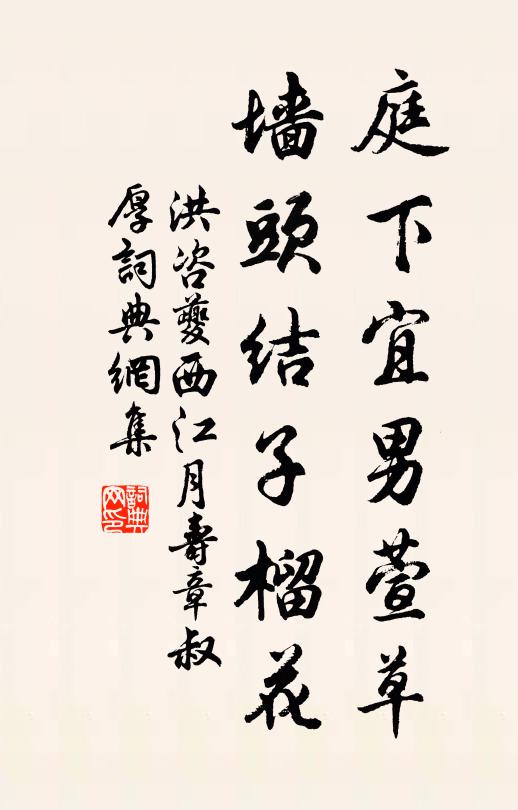 庭下宜男萱草
墙頭结子榴花
洪咨夔西江月壽章叔
厚詞典網集
詞典
网印